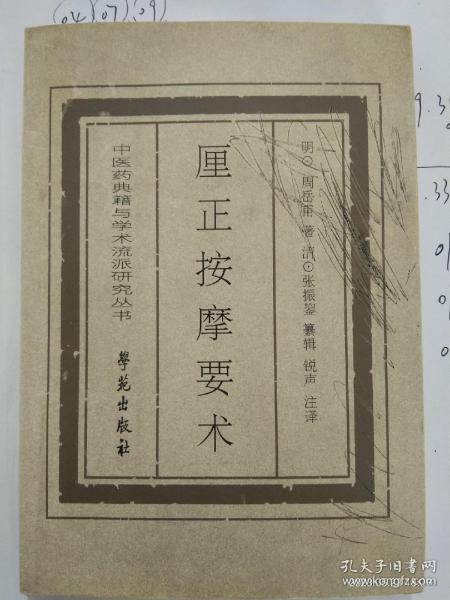 04 07 09
明⊙周岳甫 著 清⊙张振鋆 纂辑 锐声 注译
厘正按摩要术
中医药典籍与学术流派研究丛书
學苑出版社
9.3
.33
孔夫子旧书网